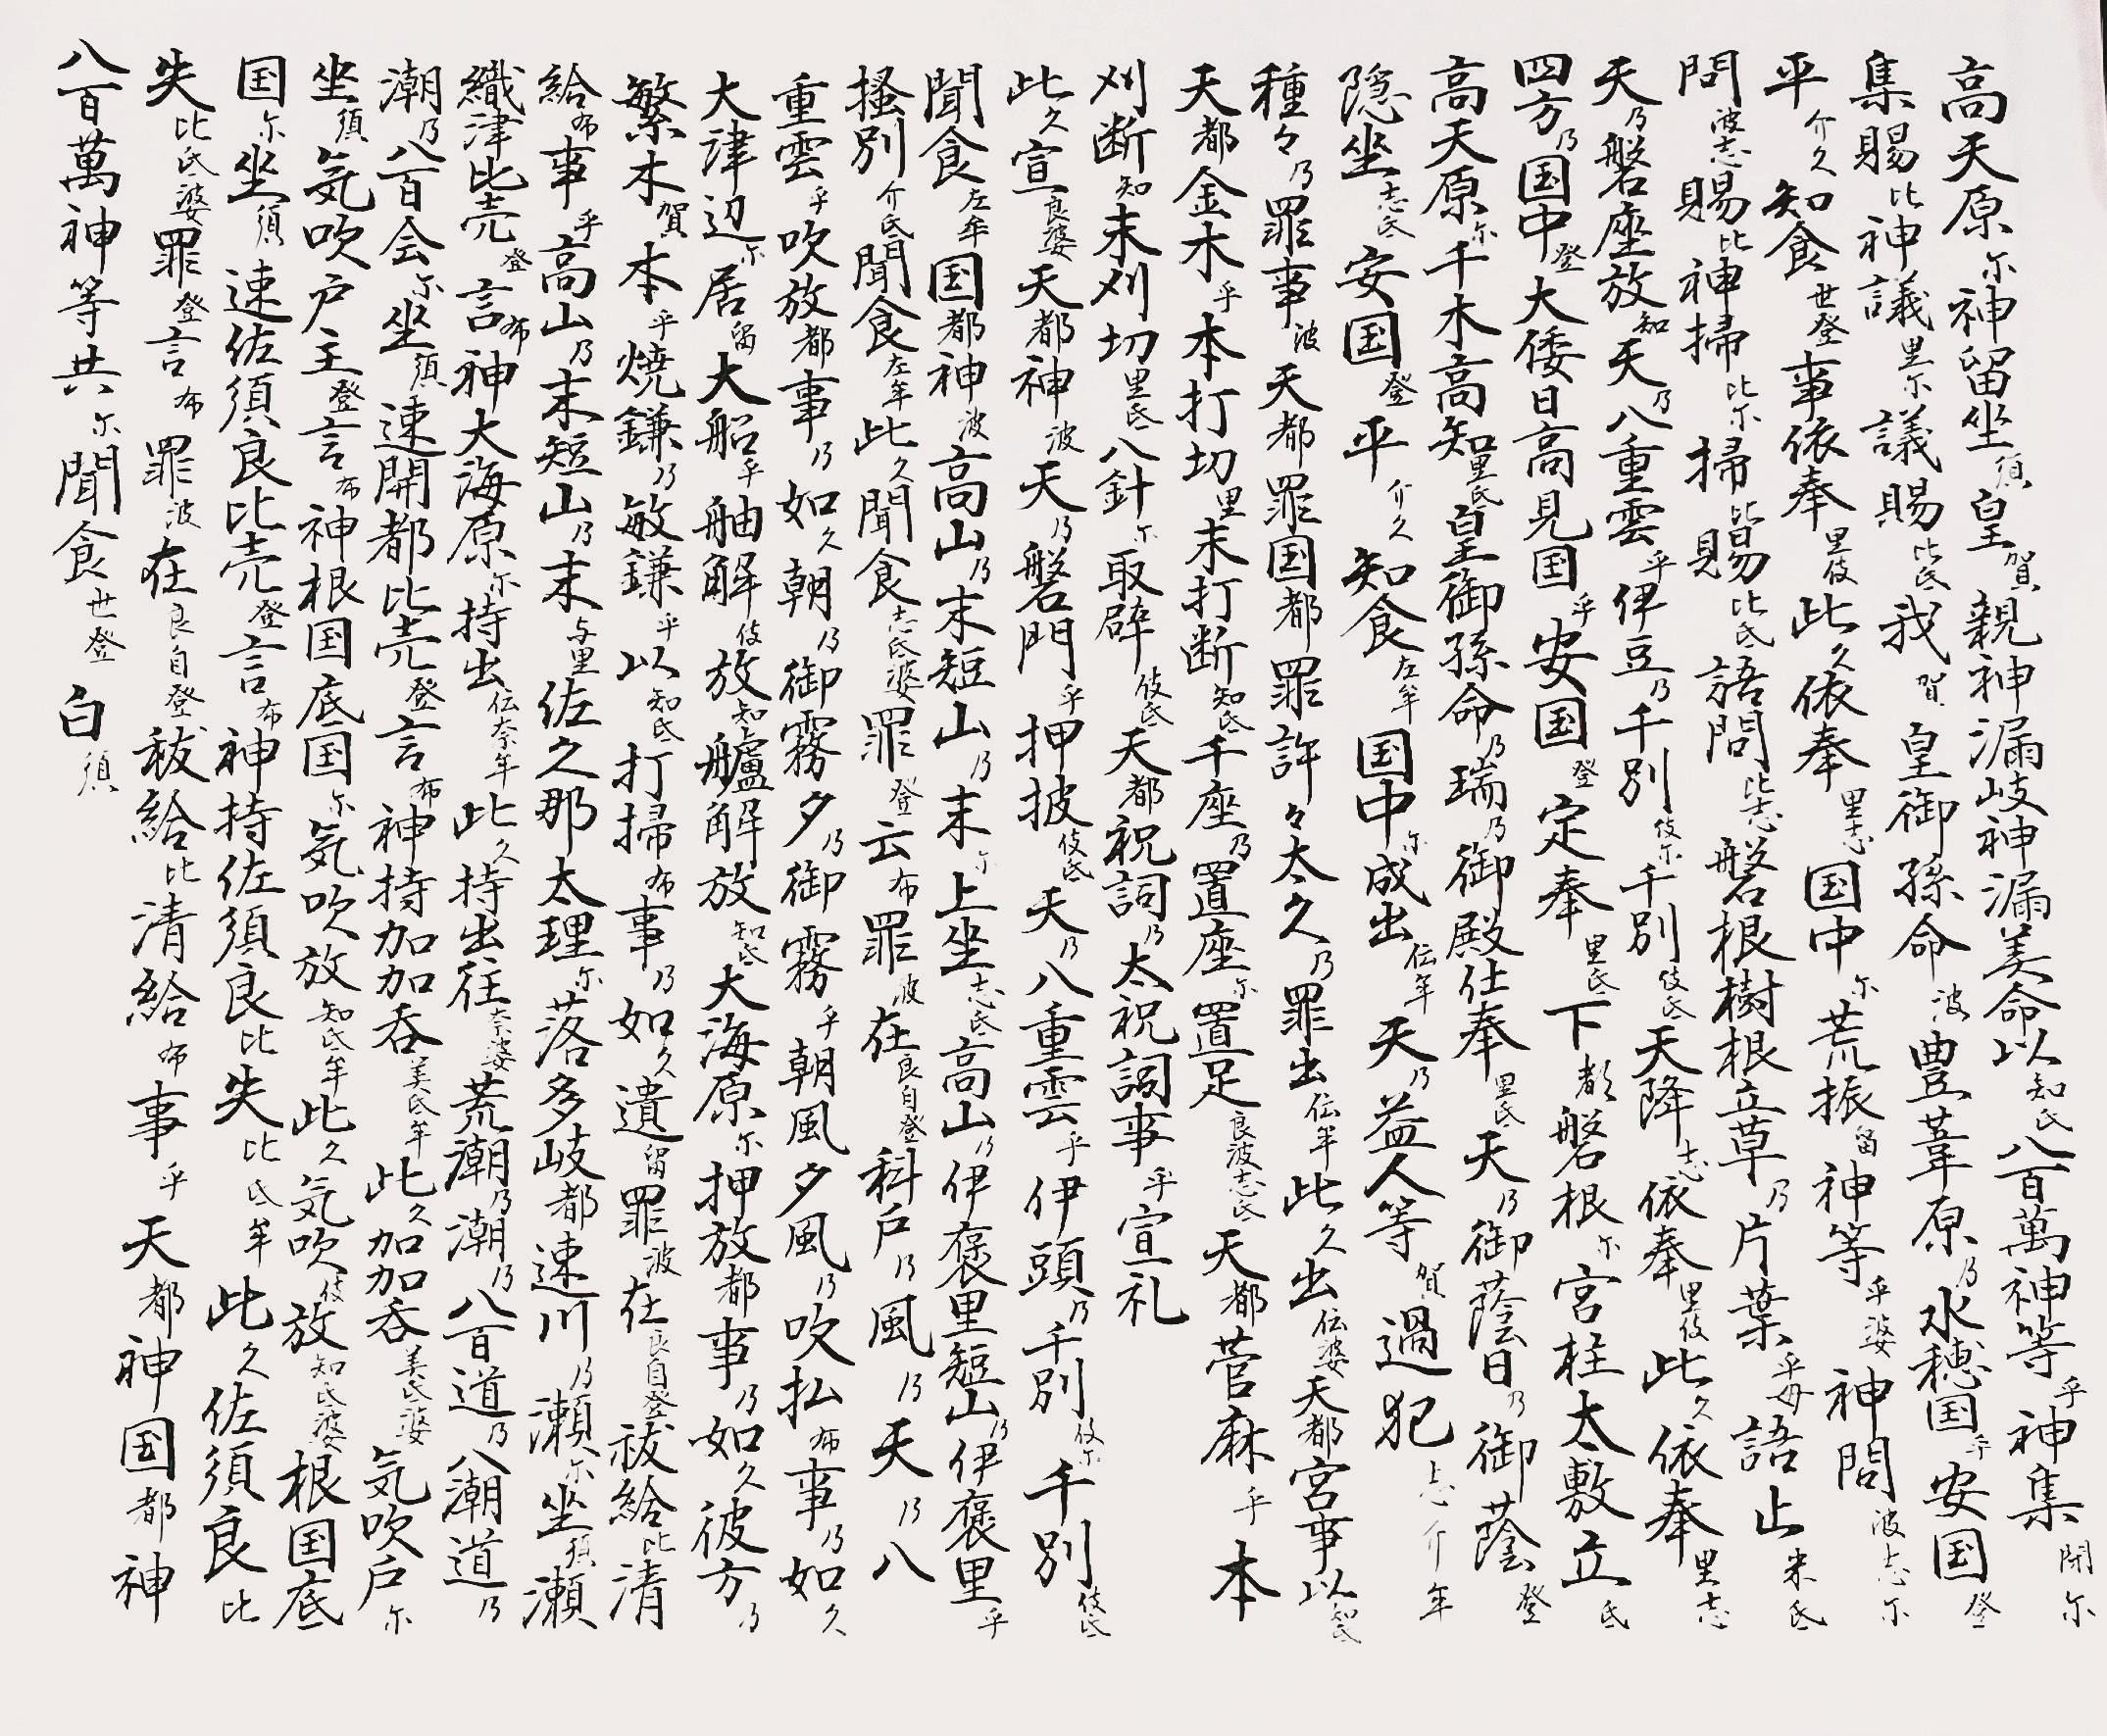 高天原尓神留坐須皇賀親神漏岐神漏美命以知氐八百萬神等乎神集閉尓
集賜比神議里尓議賜比氐我賀皇御孫命波豊葦原乃水穂国乎安国登
平介久知食世登事依奉里伎此久依奉里志国中尓荒振留神等乎婆神問波志尓
問波志賜比神掃比尓掃比賜比氐語問比志磐根樹根立草乃片葉乎母語止米氐
天乃磐座放知天乃八重雲乎伊豆乃千別伎尓千別伎氐天降志依奉里伎此久依奉里志
四方乃国中登大倭日高見国乎安国登定奉里氐下都磐根尓宮柱太敷立氐
高天原尓千木高知里氐皇御孫命乃瑞乃御殿仕奉里氐天乃御蔭日乃御蔭登
隠坐志氐安国登平介久知食左牟国中尓成出伝牟天乃益人等賀過犯志介牟
種々乃罪事波天都罪国都罪許々太久乃罪出伝牟此久出伝婆天都宮事以知氐
天都金木乎本打切里末打断知氐千座乃置座尓置足良波志氐天都菅麻乎本
刈断知末刈切里氐八針尓取辟伎氐天都祝詞乃太祝詞事乎宣礼
此久宣良婆天都神波天乃磐門乎押披伎氐天乃八重雲乎伊頭乃千別伎尓千別伎氐
聞食左牟国都神波高山乃末短山乃末尓上坐志氐高山乃伊褒里短山乃伊褒里乎
掻別介氐聞食左牟此久聞食志氐婆罪登云布罪波在良自登科戸乃風乃天乃八
重雲乎吹放都事乃如久朝乃御霧夕乃御霧乎朝風夕風乃吹払布事乃如久
大津辺尓居留大船乎舳解伎放知艫解放知氐大海原尓押放都事乃如久彼方乃
繁木賀本乎焼鎌乃敏鎌乎以知氐打掃布事乃如久遺留罪波在良自登祓給比清
給布事乎高山乃末短山乃末与里佐久那太理尓落多岐都速川乃瀬尓坐須瀬
織津比売登言布神大海原尓持出伝奈牟此久持出往奈婆荒潮乃潮乃八百道乃八潮道乃
潮乃八百会尓坐須速開都比売登言布神持加加呑美氐牟此久加加呑美氐婆気吹戸尓
坐須気吹戸主登言布神根国底国尓気吹放知氐牟此久気吹伎放知氐婆根国底
国尓坐須速佐須良比売登言布神持佐須良比失比氐牟此久佐須良比
失比氐婆罪登言布罪波在良自登祓給比清給布事乎天都神国都神
八百萬神等共尓聞食世登白須